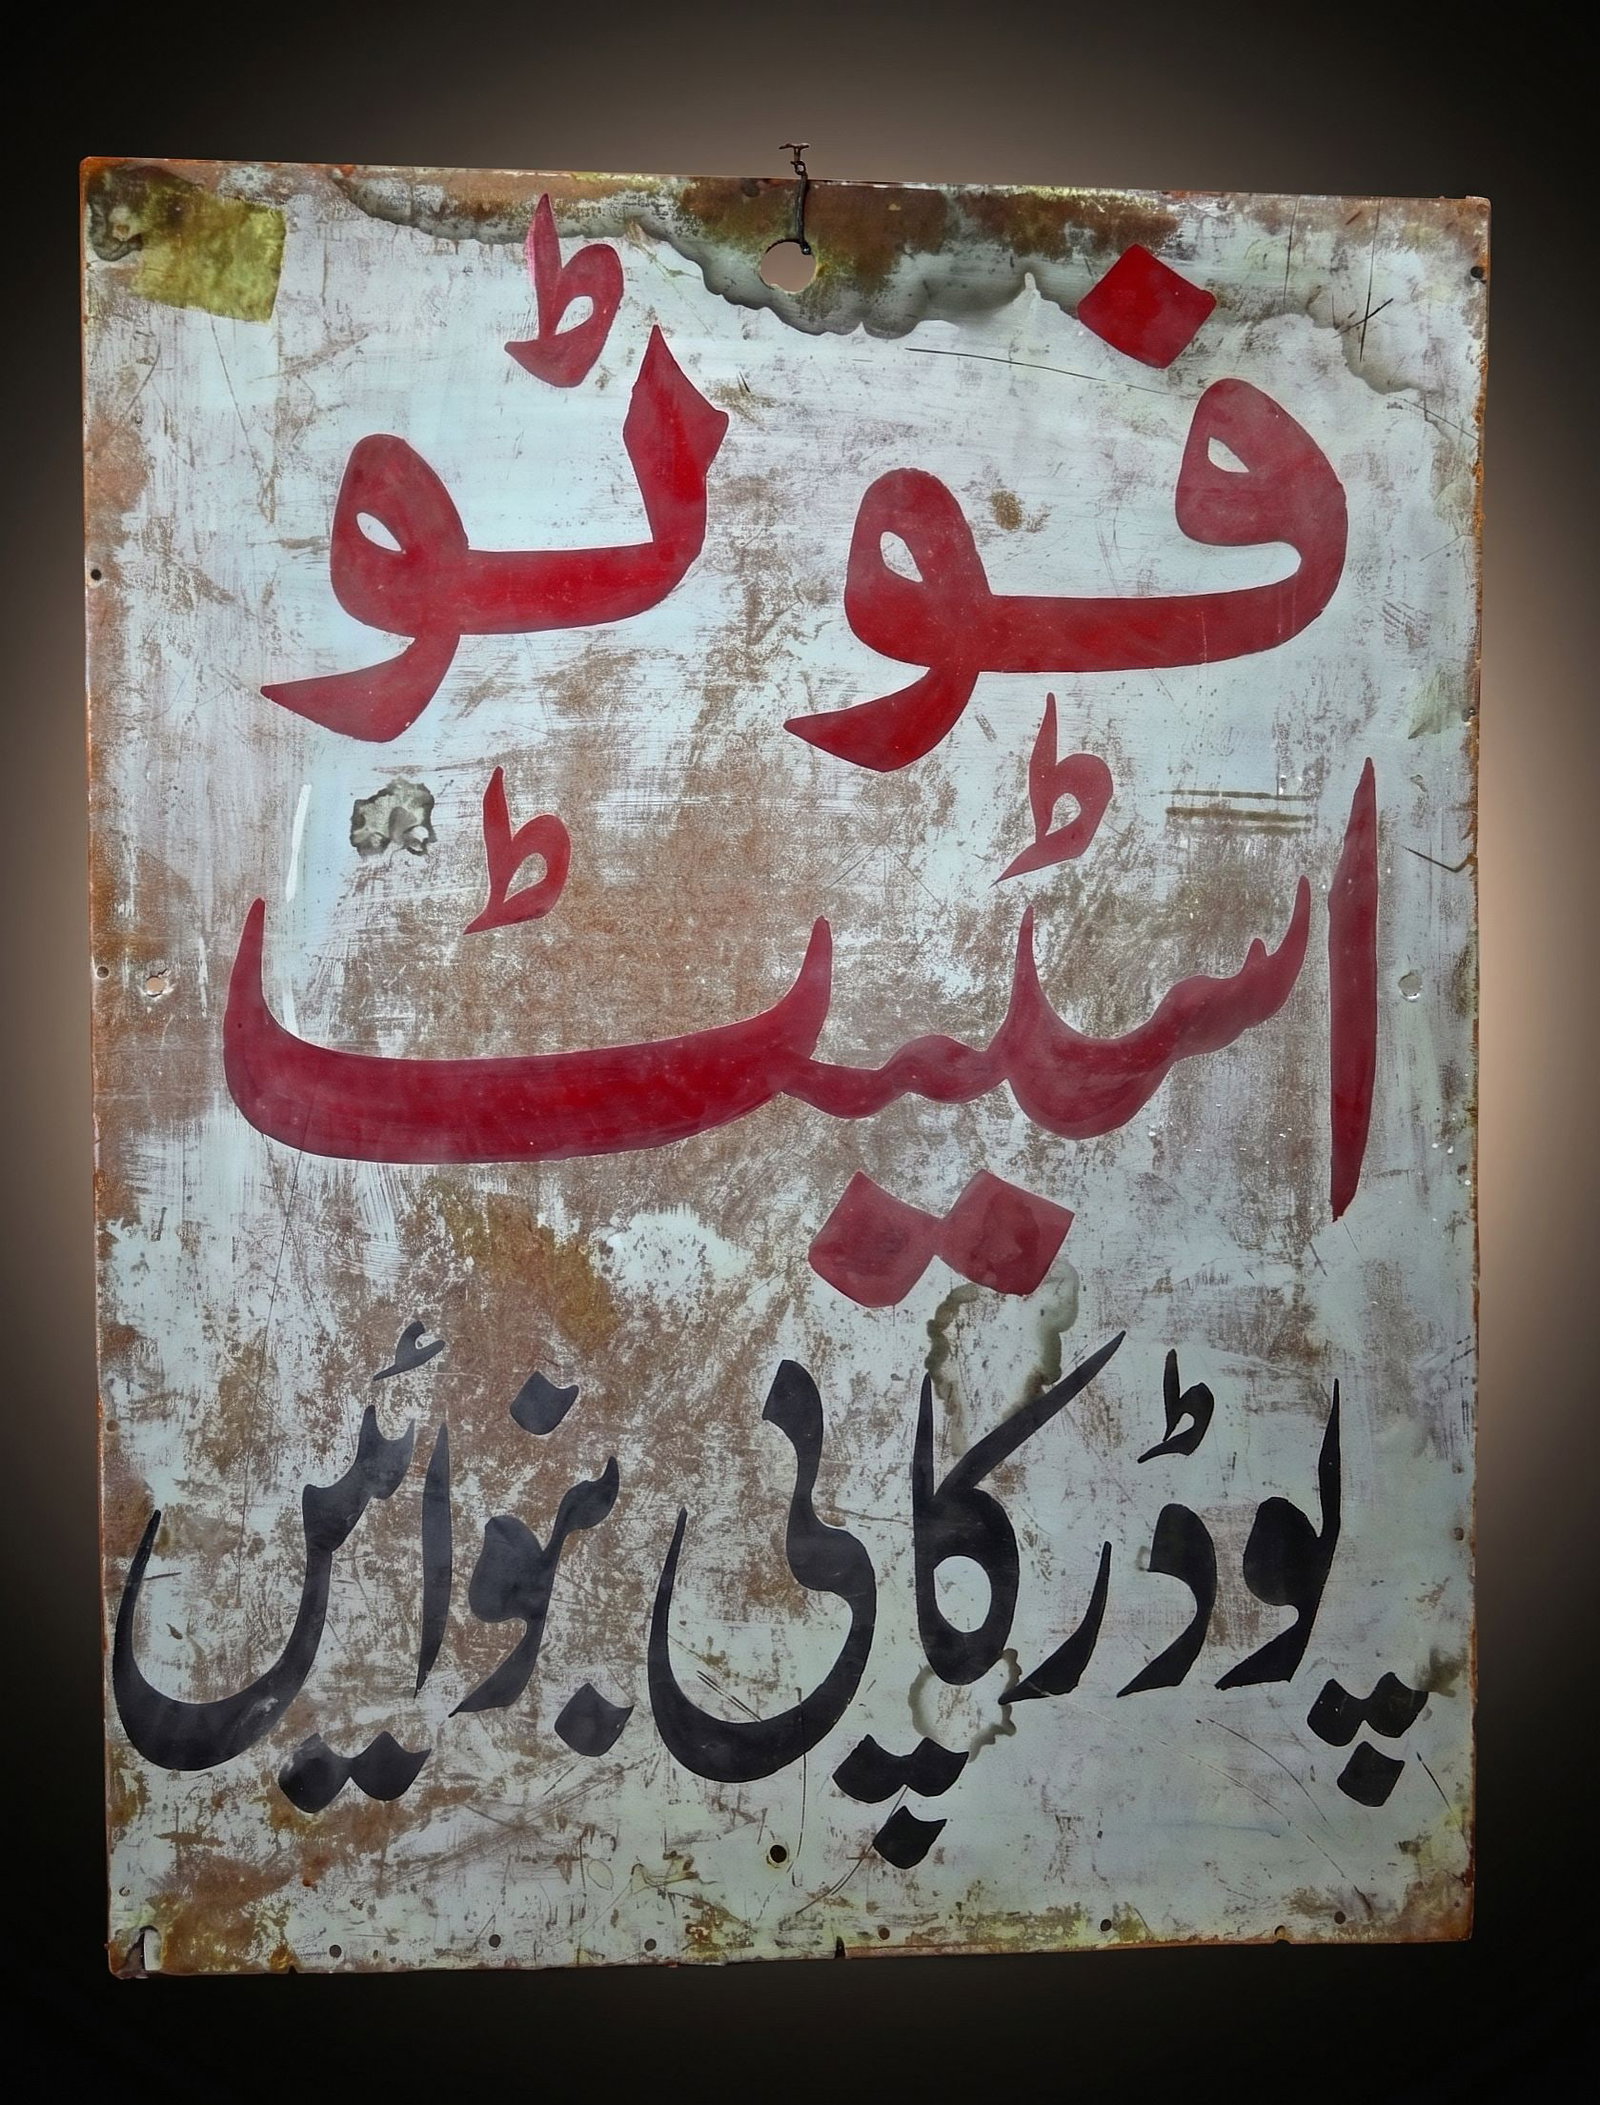 فوٹو
اسٹیٹ
پوڈر کاپی بنوائیں